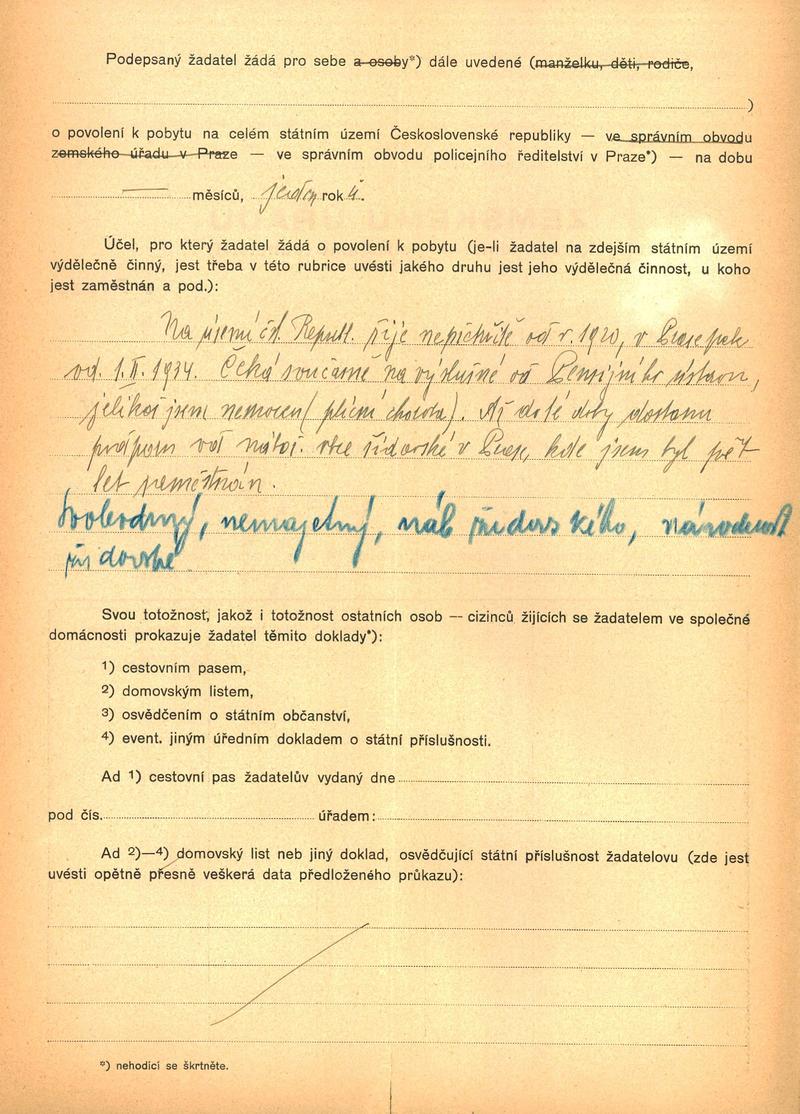 Podepsaný žadatel žádá pro sebe a osoby*) dále uvedené (manželku, děti, rodiče,
)
o povolení k pobytu na celém státním území Československé republiky — ve správním obvodu
zemského úřadu v Praze — ve správním obvodu policejního ředitelství v Praze*) — na dobu
— měsíců, jeden rok ů.
Účel, pro který žadatel žádá o povolení k pobytu (je-li žadatel na zdejším státním území
výdělečně činný, jest třeba v této rubrice uvésti jakého druhu jest jeho výdělečná činnost, u koho
jest zaměstnán a pod.):
Na území čsl. Republ. žije nepřetržitě od r. 1920, v Praze pak
od 1.II.1934. Čeká současně na výslužné od Pensijního ústavu,
jelikož jsem nemocen (plicní choroba). Až do té doby dostanu
podporu od nábož. obce židovské v Praze, kde jsem byl pět
let zaměstnán.
Svobodný, nemajetný, náb židovského, národnost
židovské
Svou totožnost, jakož i totožnost ostatních osob — cizinců žijících se žadatelem ve společné
domácnosti prokazuje žadatel těmito doklady*):
1) cestovním pasem,
2) domovským listem,
3) osvědčením o státním občanství,
4) event. jiným úředním dokladem o státní příslušnosti.
Ad 1) cestovní pas žadatelův vydaný dne
pod čís. úřadem:
Ad 2)—4) domovský list neb jiný doklad, osvědčující státní příslušnost žadatelovu (zde jest
uvésti opětně přesně veškerá data předloženého průkazu):
*) nehodící se škrtněte.